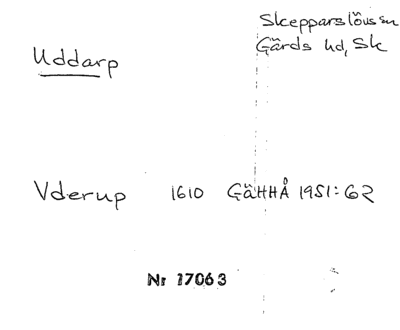 Skepparslövs sn
Gärds hd, Sk
Uddarp
Vderup 1610 GäHHÅ 1951:62
Nr 17063